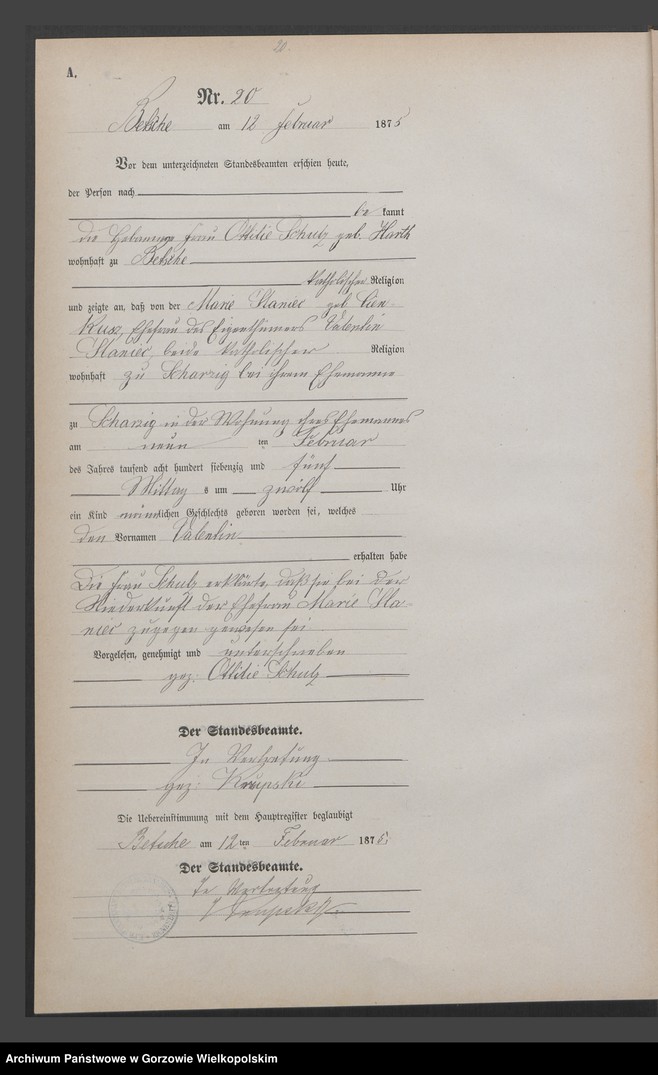 20.
A.
Nr. 20
Betsche am 12 Februar 1875
Vor dem unterzeichneten Standesbeamten erschien heute,
der Person nach
be kannt
die Hebamme Frau Ottilie Schulz geb. Harth
wohnhaft zu Betsche
katholischer Religion
und zeigte an, daß von der Marie Staniec geb.
Ehefrau des Eigenthümers Valentin
Staniec, beide katholischer Religion
wohnhaft zu Scharzig bei ihrem Ehemanne
zu Scharzig in der Wohnung ihres Ehemannes
am neun ten Februar
des Jahres tausend acht hundert siebenzig und fünf
Mittag s um zwölf Uhr
ein Kind männlichen Geschlechts geboren worden sei, welches
den Vornamen Valentin
erhalten habe
Die Frau Schulz erklärte, daß sie bei der
Niederkunft der Ehefrau Marie Sta-
niec zugegen gewesen sei.
Vorgelesen, genehmigt und unterschrieben
gez: Ottilie Schulz
Der Standesbeamte.
In Vertretung
gez: Krupski
Die Uebereinstimmung mit dem Hauptregister beglaubigt
Betsche am 12 ten Februar 1875.
Der Standesbeamte.
In Vertretung
Krupski
Archiwum Państwowe w Gorzowie Wielkopolskim